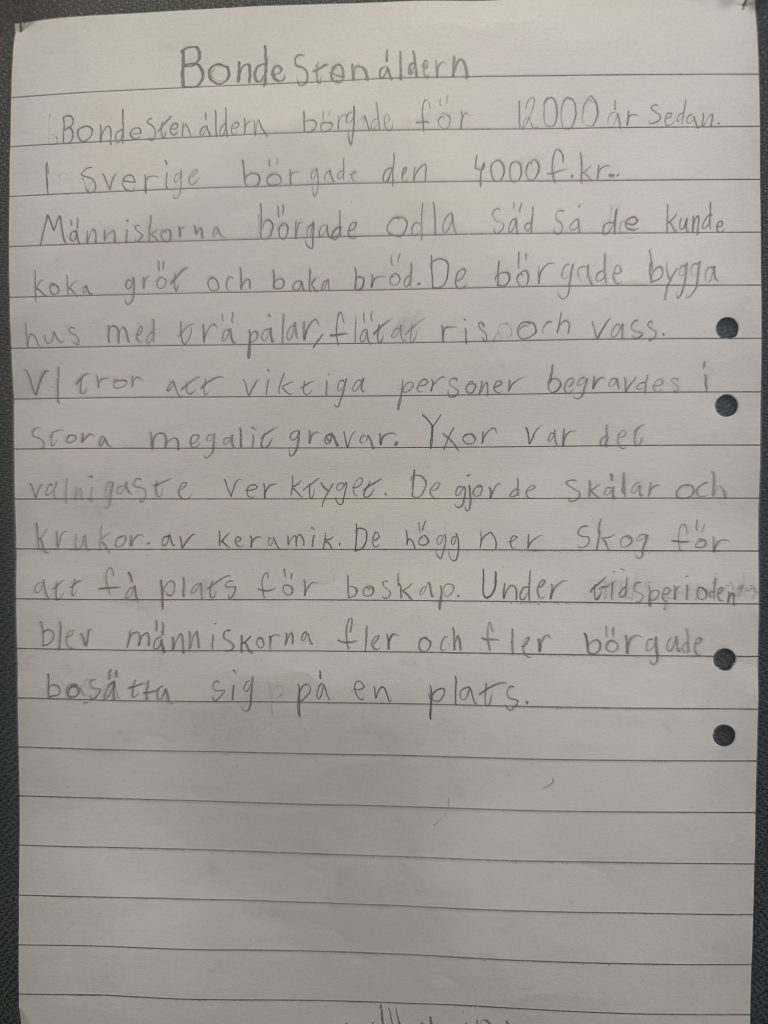 Bondestenåldern
Bondestenåldern börgade för 12000 år sedan.
I sverige börgade den 4000 f.kr..
Människorna börgade odla säd så de kunde
koka gröt och baka bröd. De börgade bygga
hus med träpålar, flätat ris och vass.
VI tror att viktiga personer begravdes i
stora megalit gravar. Yxor var det
valnigaste verktyget. De gjorde skålar och
krukor. av keramik. De högg ner skog för
att få plats för boskap. Under tidsperioden
blev människorna fler och fler börgade
bosätta sig på en plats.